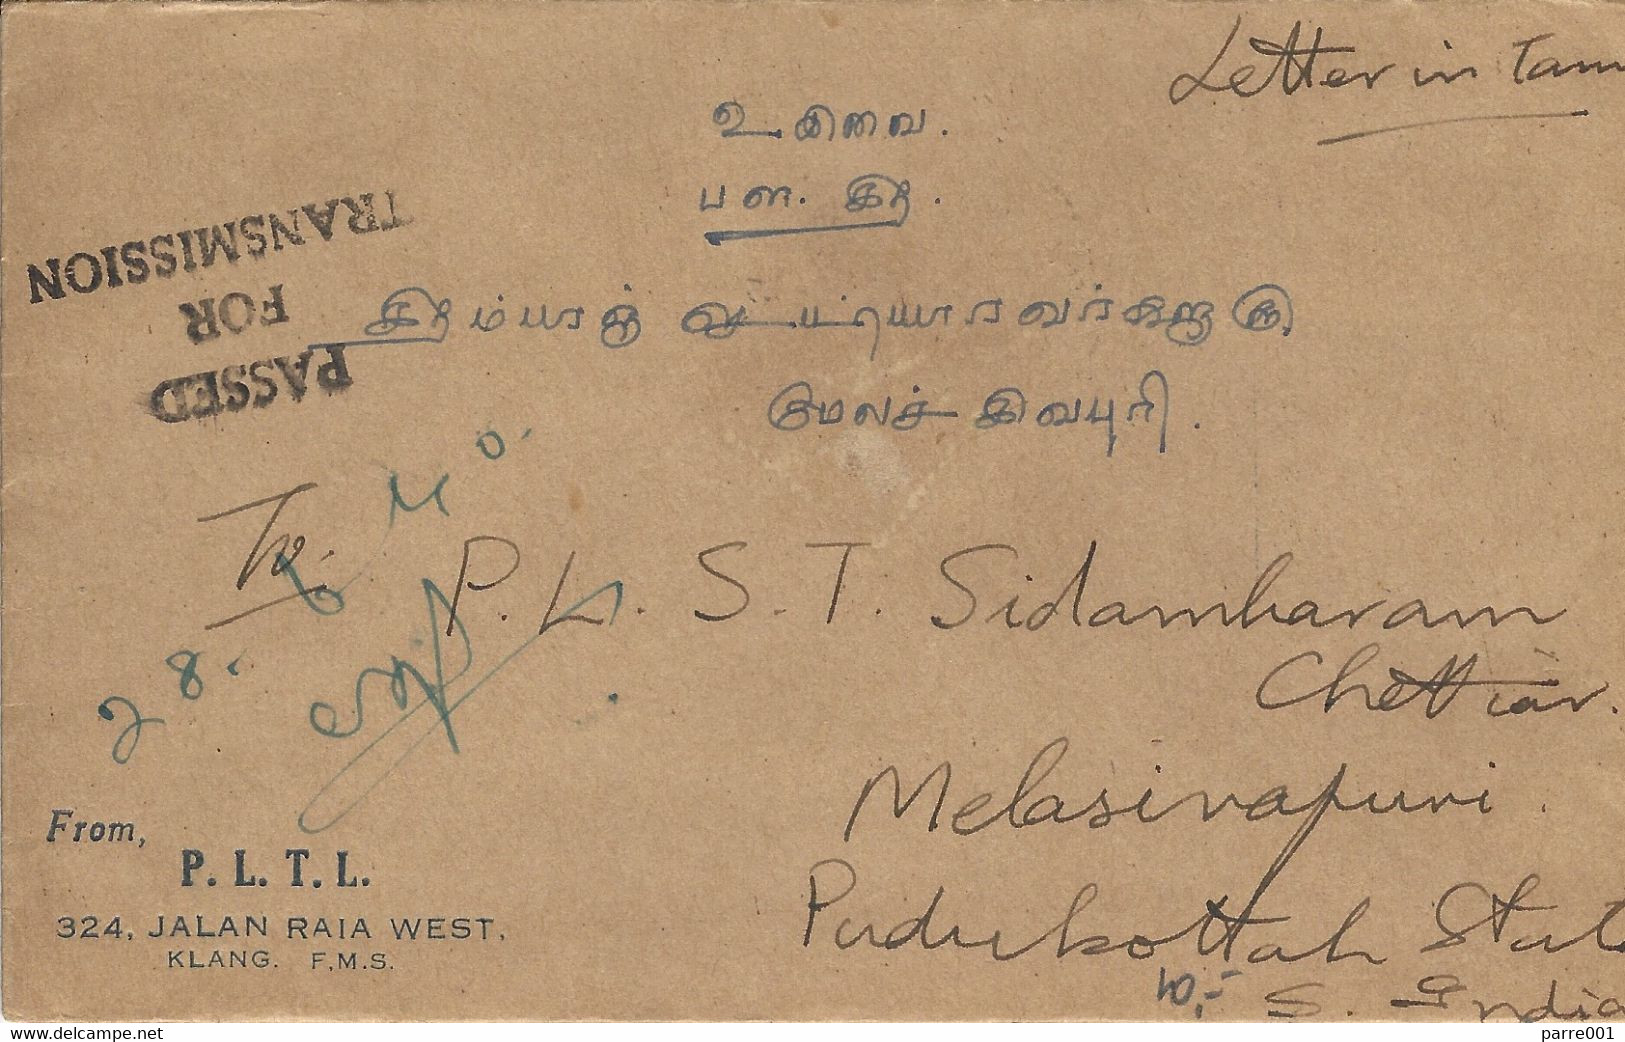 Letter in Tam
உ சிவை.
பள. சித.
சிதம்பரஞ் செட்டியாரவர்களுக்கு
மேலச் சிவபுரி.
PASSED
FOR
TRANSMISSION
To.
P. L. S. T. Sidambaram
Chettiar.
Melasivapuri.
Pudukottah State
S. India
From,
P. L. T. L.
324, JALAN RAIA WEST,
KLANG. F.M.S.
10,-
parre001